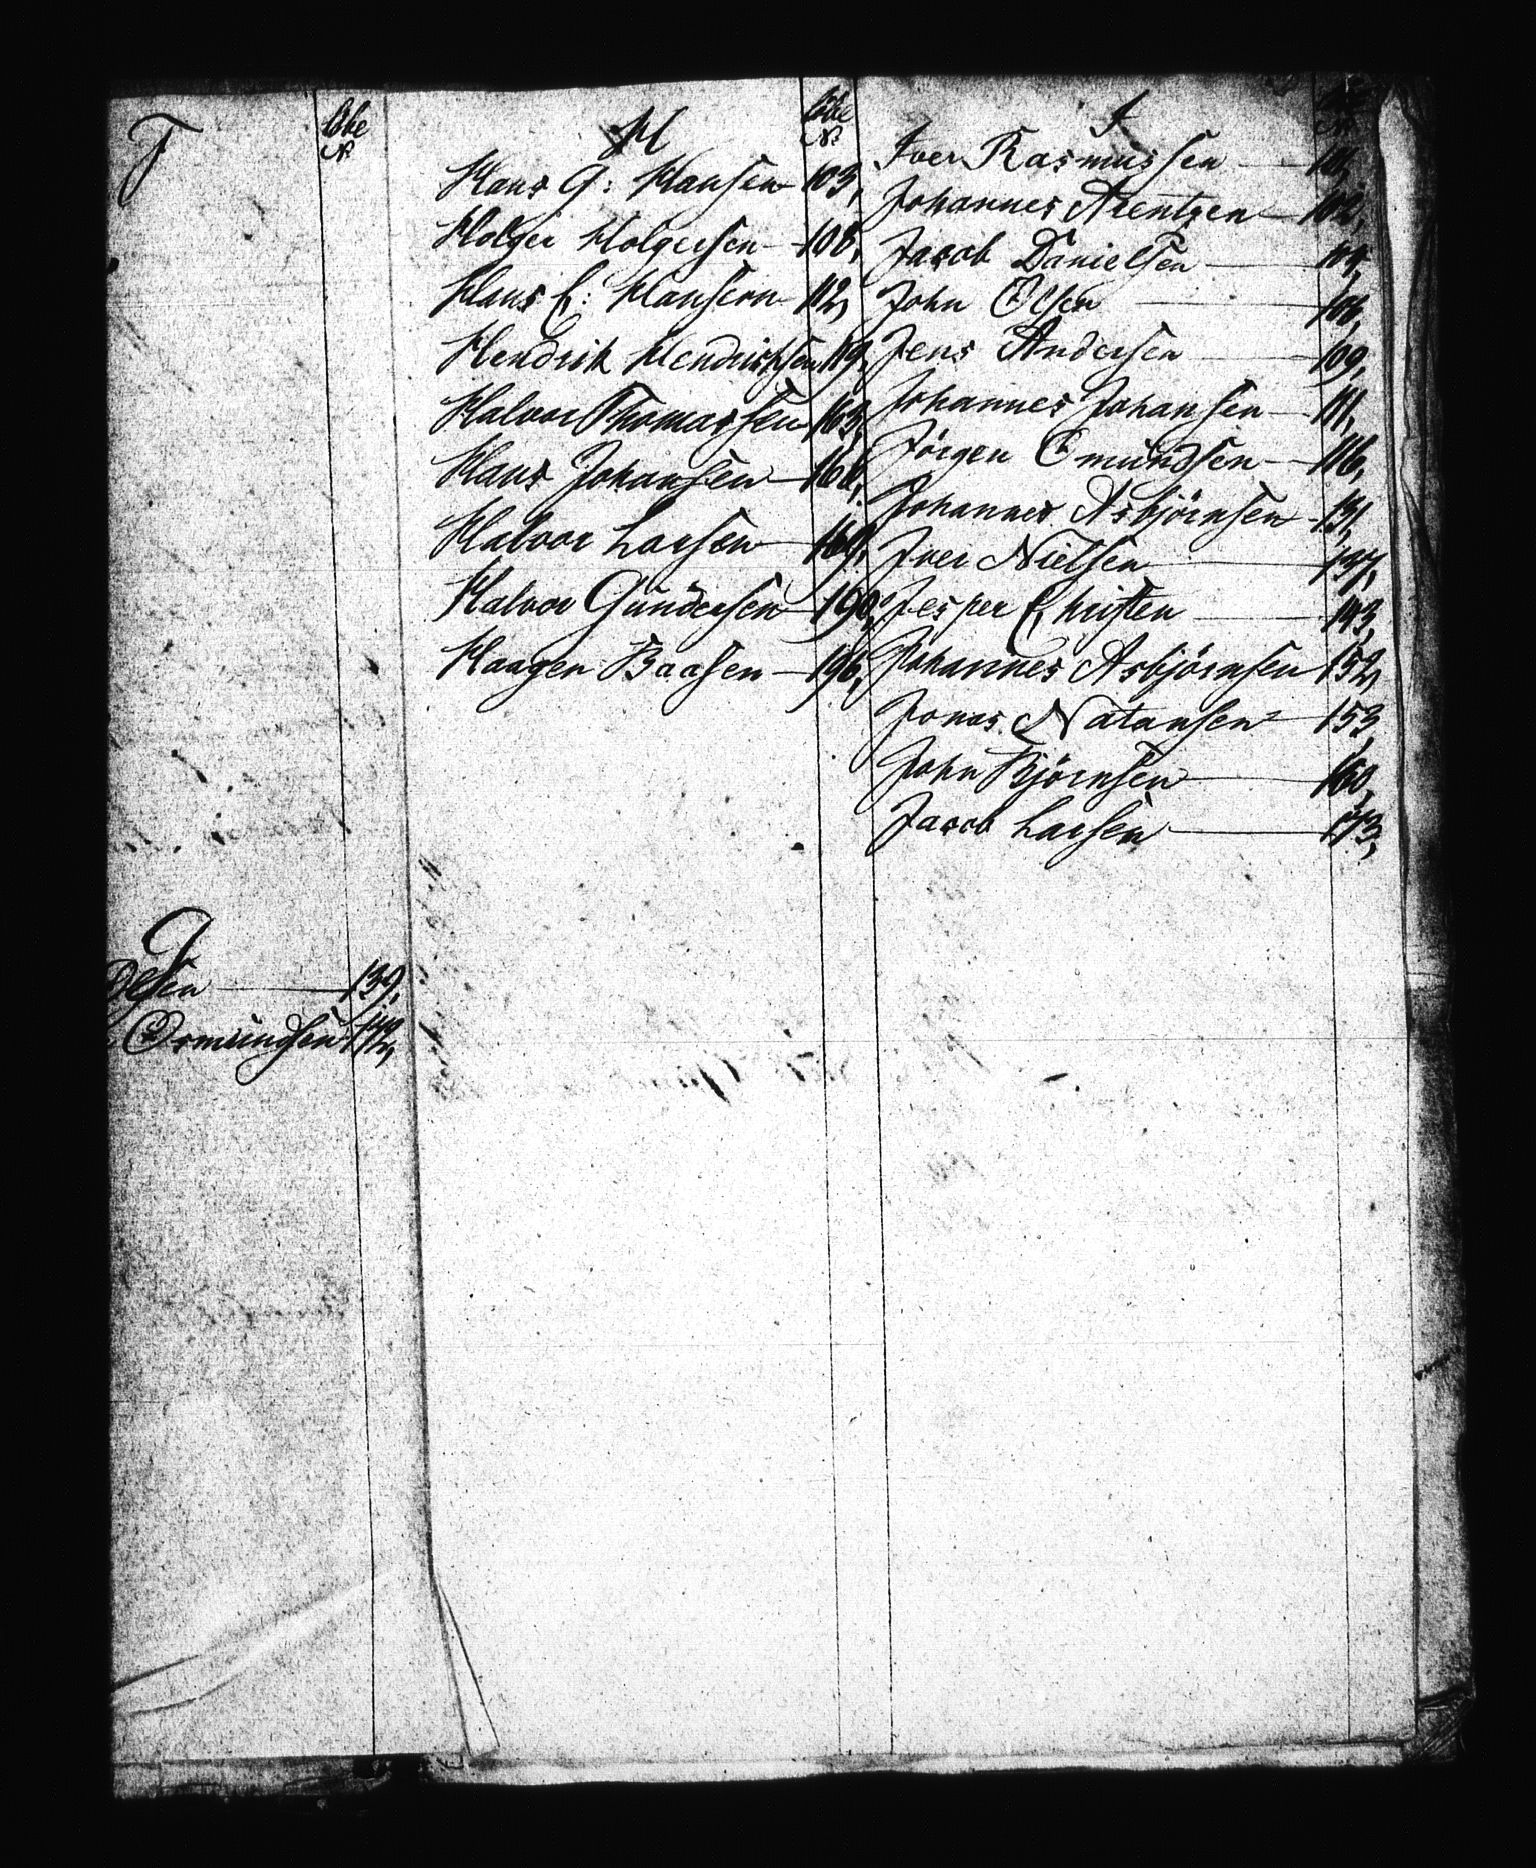 F
Løbe
No
G
Olsen 139,
Osmundsen 142,
H
Løbe
No
Hans G: Hansen 103,
Holger Holgersen 108,
Hans C: Hansen 112,
Hendrik Hendrichsen 119,
Halvor Thomassen 163,
Hans Johansen 166,
Halvor Larsen 169,
Halvor Gundersen 190,
Haagen Baasen 196,
I
No
Iver Rasmussen 101,
Johannes Arentzen 102,
Jacob Danielsen 104,
John Olsen 106,
Jens Andersen 109,
Johannes Johansen 111,
Jörgen Omundsen 116,
Johannes Asbjörnsen 131,
Iver Nielsen 137,
Jesper Christen 143,
Johannes Asbjörnsen 152,
Jonas Natansen 153,
John Bjørnsen 160,
Jacob Larsen 173,